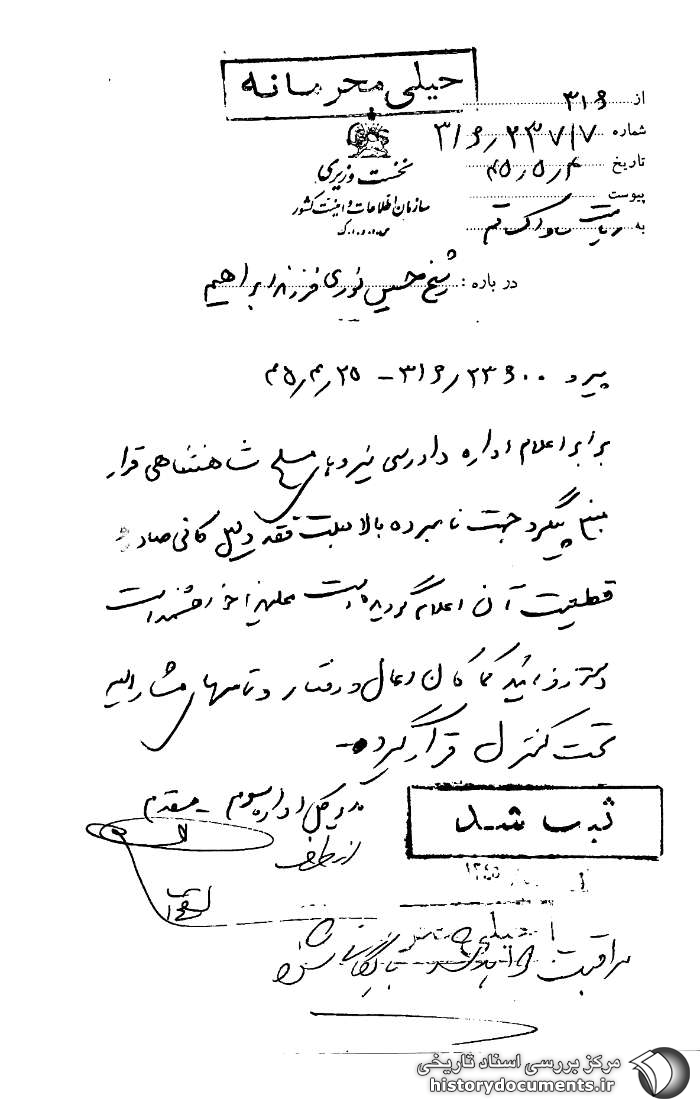 خیلی محرمانه
از ۳۱۶
شماره ۳۱۶/۲۳۷۱۷
تاریخ ۴۵/۵/۴
پیوست
به ریاست ساواک قم
نخست وزیری
سازمان اطلاعات و امنیت کشور
س.ا.و.ا.ک
در باره : شیخ حسین نوری فرزند ابراهیم
پیرو ۳۱۶/۲۳۶۰۰ - ۴۵/۴/۲۵
برابر اعلام اداره دادرسی نیروهای مسلح شاهنشاهی قرار
منع پیگرد جهت نامبرده بالا بعلت فقد دلیل کافی صادر و
قطعیت آن اعلام گردیده است علیهذا خواهشمند است
دستور فرمائید کماکان اعمال و رفتار و تماسهای مشارالیه
تحت کنترل قرار گیرد
مدیر کل اداره سوم - مقدم
از طرف
ثبت شد
مراقبت
مرکز بررسی اسناد تاریخی
historydocuments.ir